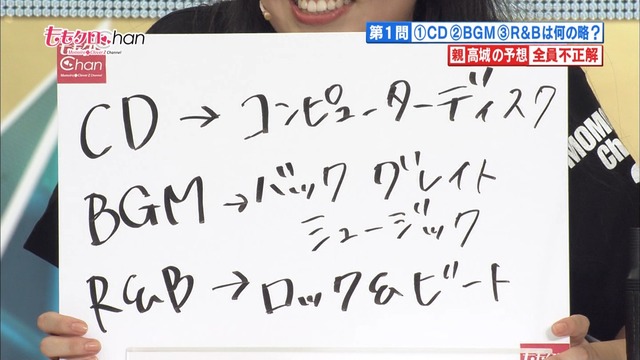 ももクロChan
Momoiro Clover Z Channel
第1問 ①CD②BGM③R&Bは何の略?
親 高城の予想 全員不正解
Chan
CD → コンピューターディスク
BGM → バック グレイト
ミュージック
R&B → ロック&ビート
MOMO